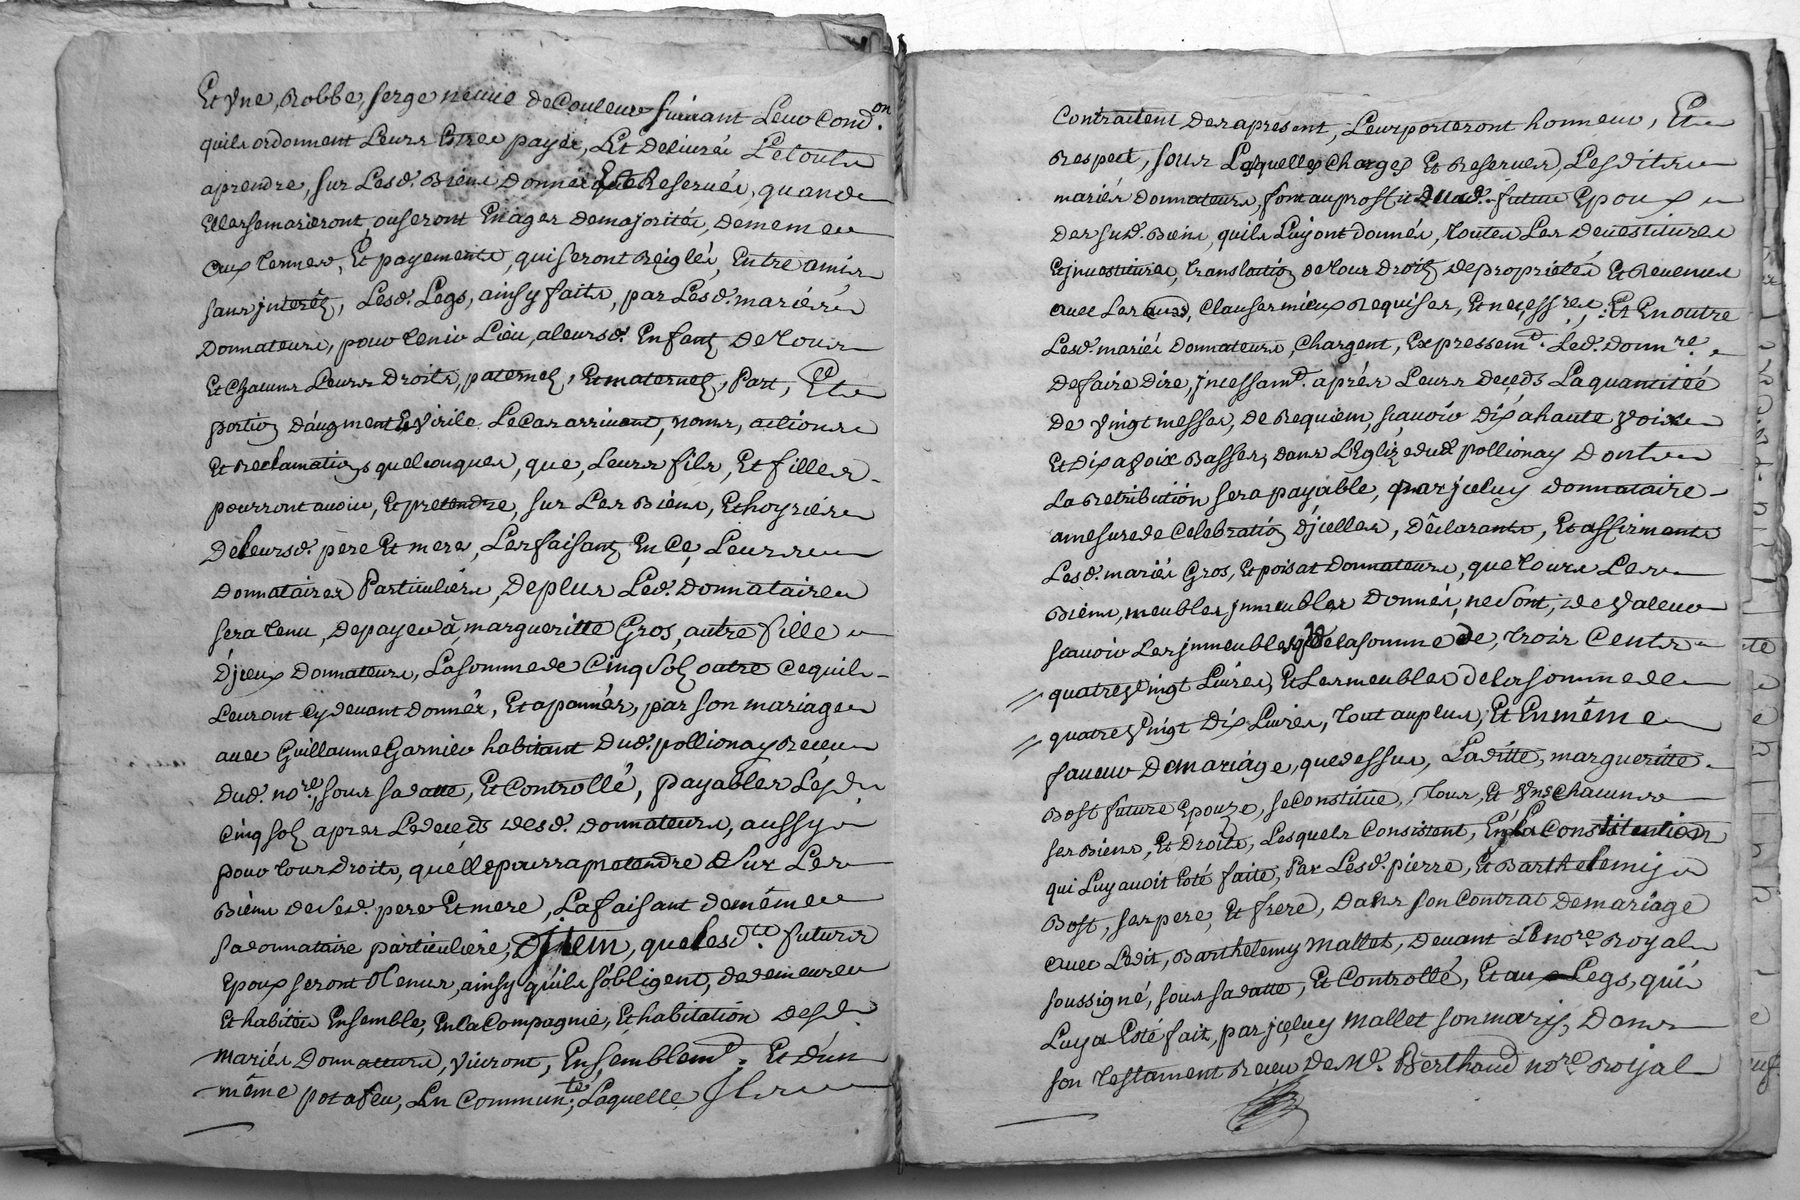 Et Une Robbe, serge neuve de Couleur suivant Leur Cond.on
quils ordonnent Leurs Estre payés, Et Delivrés Le tout
aprendre, sur Lesd. Biens Donnés Et Reservés, quand
Elles se marieront, ou seront En ages de majorités, de meme
aux termes, Et payements, qui seront Reiglés, Entre amis
sans jnterêtz, Lesd. Legs, ainsy faits, par Lesd. mariés
Donnateurs, pour tenir Lieu, a leursd. Enfantz De tous
Et Chacuns Leurs Droits, paternelz, Et maternelz, Part, Et
portion d'augment Et Virile Le Cas arrivant, noms, actions
Et Reclamations quelconques, que, Leurs fils, Et filles
pourront avoir, Et pretendre, sur Les Biens, Et hoyries
De leursd. père Et mere, Les faisantz En Ce, Leurs
Donnataires Particuliers, De plus Led. Donnataire
sera tenu, de payer à margueritte Gros, autre fille
D'jceux Donnateurs, La somme de Cinq Solz outre Ce quils
Leur ont Cy devant Donnés, Et aponnés, par son mariage
avec Guillaume Garnier habitant Dud. pollionay Receu
Dud. no.re, sous sa datte, Et Controllé, payables Lesd.
Cinq solz apres Le deceds desd. Donnateurs, aussy
pour tous Droits, quelle pourra pretendre Sur Les
Biens de Sesd. pere Et mere, La faisant de même
sa donnataire particuliere, Djtem, que Lesd.ts futurs
Epoux seront tenus, ainsy qu'ils s'obligent, de demeurer
Et habiter Ensemble, En la Compagnie, Et habitation Desd.
mariés Donnatteurs, vivront, Ensemblem.t Et d'un
même pot a feu, En Commun.té, Laquelle Ils
Contraitent Des apresent, Leur porteront honneur, Et
Respect, sous Lesquelles Charges Et Reserves, Lesdits
mariés Donnateurs, font au proffit Dud. futur Epoux
Des sud. Biens, quils Luy ont donnés, toutes Les Devestitures
Et jnvestitures, translation de tous Droitz de proprietés Et Revenus
avec Les aud, Clauses mieux Requises, Et necess.res, Et En outre
Lesd. mariés Donnateurs, Chargent, Expressem.t Led. Donn.re
De faire Dire, jncessam.t aprés Leurs deceds La quantitéé
De Vingt messes, De Requiem, scavoir Dix a haute Voix
Et Dix a Voix Basses, dans L'Eglize dud. pollionay Dont
La Retribution sera payable, par jceluy Donnataire
a mesure de Celebration D'jcelles, Déclarants, Et affirments
Lesd. mariés Gros, Et poisat Donnateurs, que tous Les
Biens, meubles jmmeubles Donnés, ne Sont, de Valeur
scavoir Les jmmeubles que de la somme de, trois Cents
quatre Vingt Livres, Et Les meubles de la somme de
quatre Vingt Dix Livres, tout au plus, Et En même
faveur De mariage, que dessus, Laditte, margueritte
Bost future Epouze, se Constitue, tous, Et Uns Chacuns
ses Biens, Et Droits, Lesquels Consistent, En La Constitution
qui Luy avoit Eté faite, Par Lesd. pierre, Et Barthelemy
Bost, ses pere, Et frere, Dans son Contrat De mariage
avec Ledit, Barthelemy Mallet, Devant Le no.re Royal
soussigné, sous sa datte, Et Controllé, Et au Legs, qui
Luy a Eté fait, par jceluy Mallet son mary, Dans
son testament Receu De M.e Berthaud no.re Royal